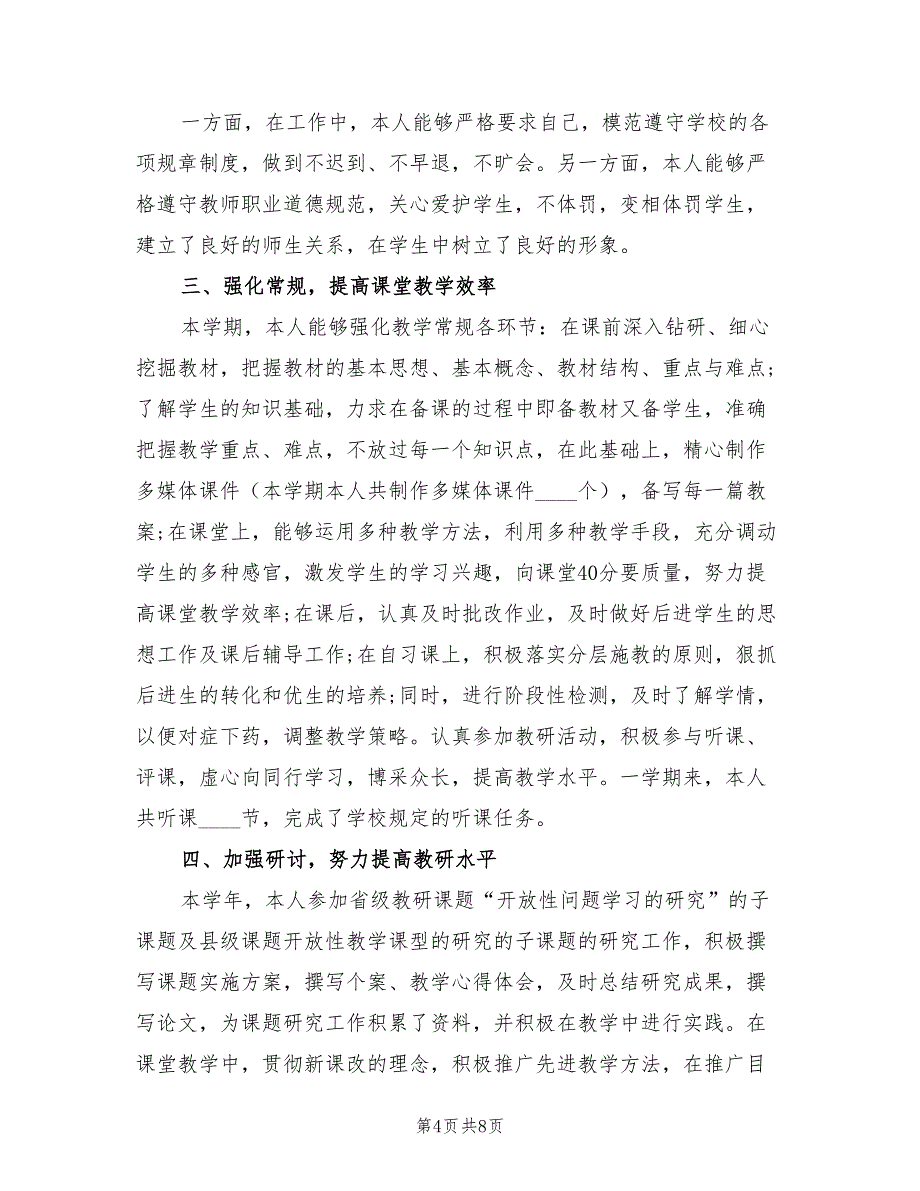 一方面，在工作中，本人能够严格要求自己，模范遵守学校的各
项规章制度，做到不迟到、不早退，不旷会。另一方面，本人能够严
格遵守教师职业道德规范，关心爱护学生，不体罚，变相体罚学生，
建立了良好的师生关系，在学生中树立了良好的形象。
三、强化常规，提高课堂教学效率
本学期，本人能够强化教学常规各环节：在课前深入钻研、细心
挖掘教材，把握教材的基本思想、基本概念、教材结构、重点与难点;
了解学生的知识基础，力求在备课的过程中即备教材又备学生，准确
把握教学重点、难点，不放过每一个知识点，在此基础上，精心制作
多媒体课件（本学期本人共制作多媒体课件____个），备写每一篇教
案;在课堂上，能够运用多种教学方法，利用多种教学手段，充分调动
学生的多种感官，激发学生的学习兴趣，向课堂40分要质量，努力提
高课堂教学效率;在课后，认真及时批改作业，及时做好后进学生的思
想工作及课后辅导工作;在自习课上，积极落实分层施教的原则，狠抓
后进生的转化和优生的培养;同时，进行阶段性检测，及时了解学情，
以便对症下药，调整教学策略。认真参加教研活动，积极参与听课、
评课，虚心向同行学习，博采众长，提高教学水平。一学期来，本人
共听课____节，完成了学校规定的听课任务。
四、加强研讨，努力提高教研水平
本学年，本人参加省级教研课题“开放性问题学习的研究”的子
课题及县级课题开放性教学课型的研究的子课题的研究工作，积极撰
写课题实施方案，撰写个案、教学心得体会，及时总结研究成果，撰
写论文，为课题研究工作积累了资料，并积极在教学中进行实践。在
课堂教学中，贯彻新课改的理念，积极推广先进教学方法，在推广目
第4页 共8页